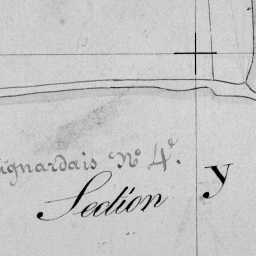 ignardais N° 4e.
Section Y